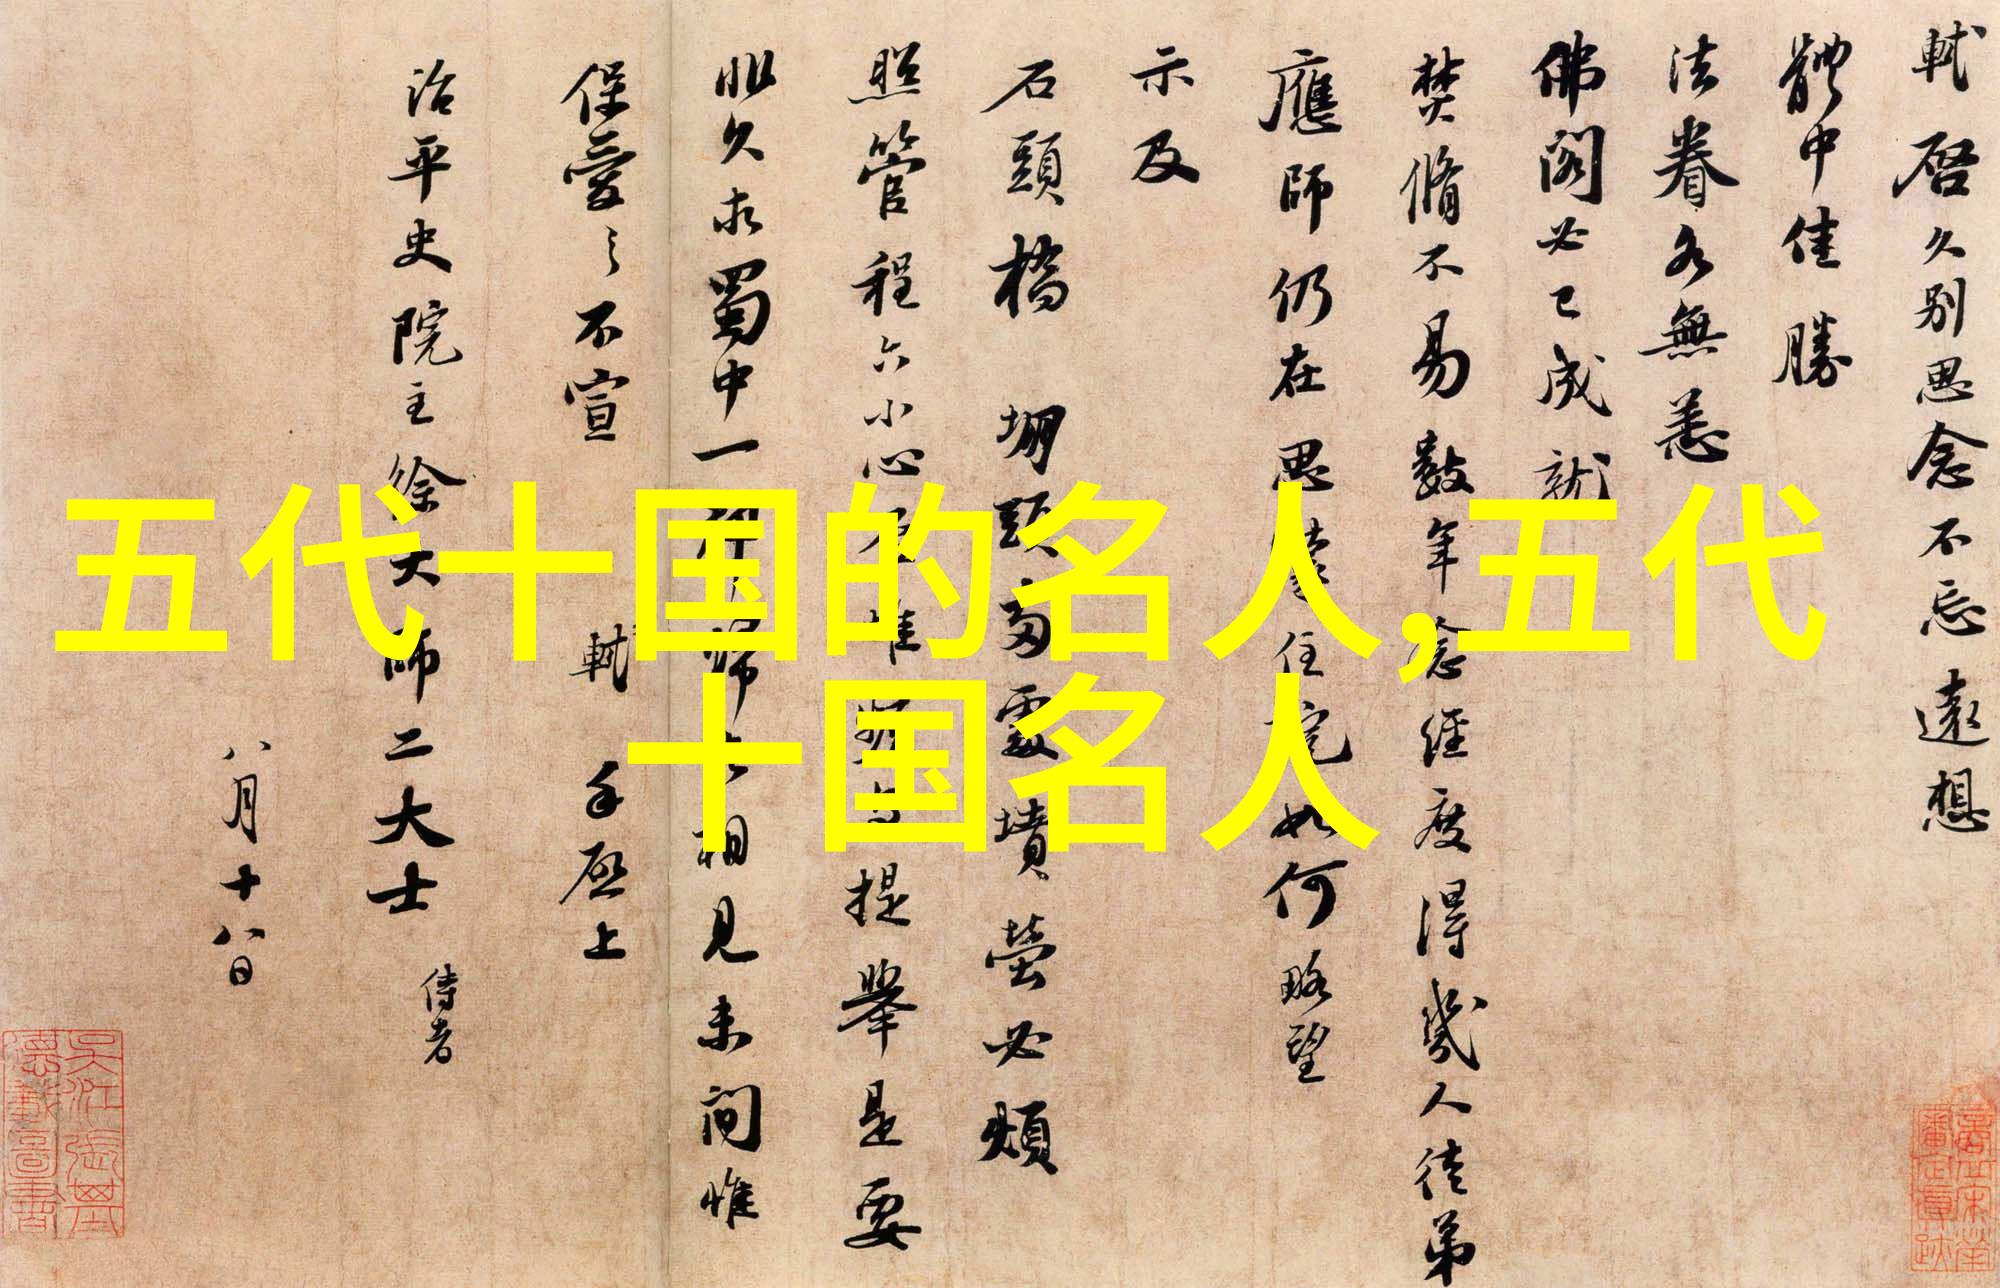 五代十国的名人,五代
十国名人
軾啓久别思念不忘遠想
體中佳勝
法眷各無恙
佛閣必已成就
焚脩不易數年念經度得幾人徒弟
應師仍在思住院如何略望
示及
石頭橋堋頭兩處墳塋必煩
照管程六小心否惟提舉是要
非久求蜀中一歸去相見未間惟
保愛之不宣 軾手啓上
治平史院主徐大師二大士 侍者
八月十八日